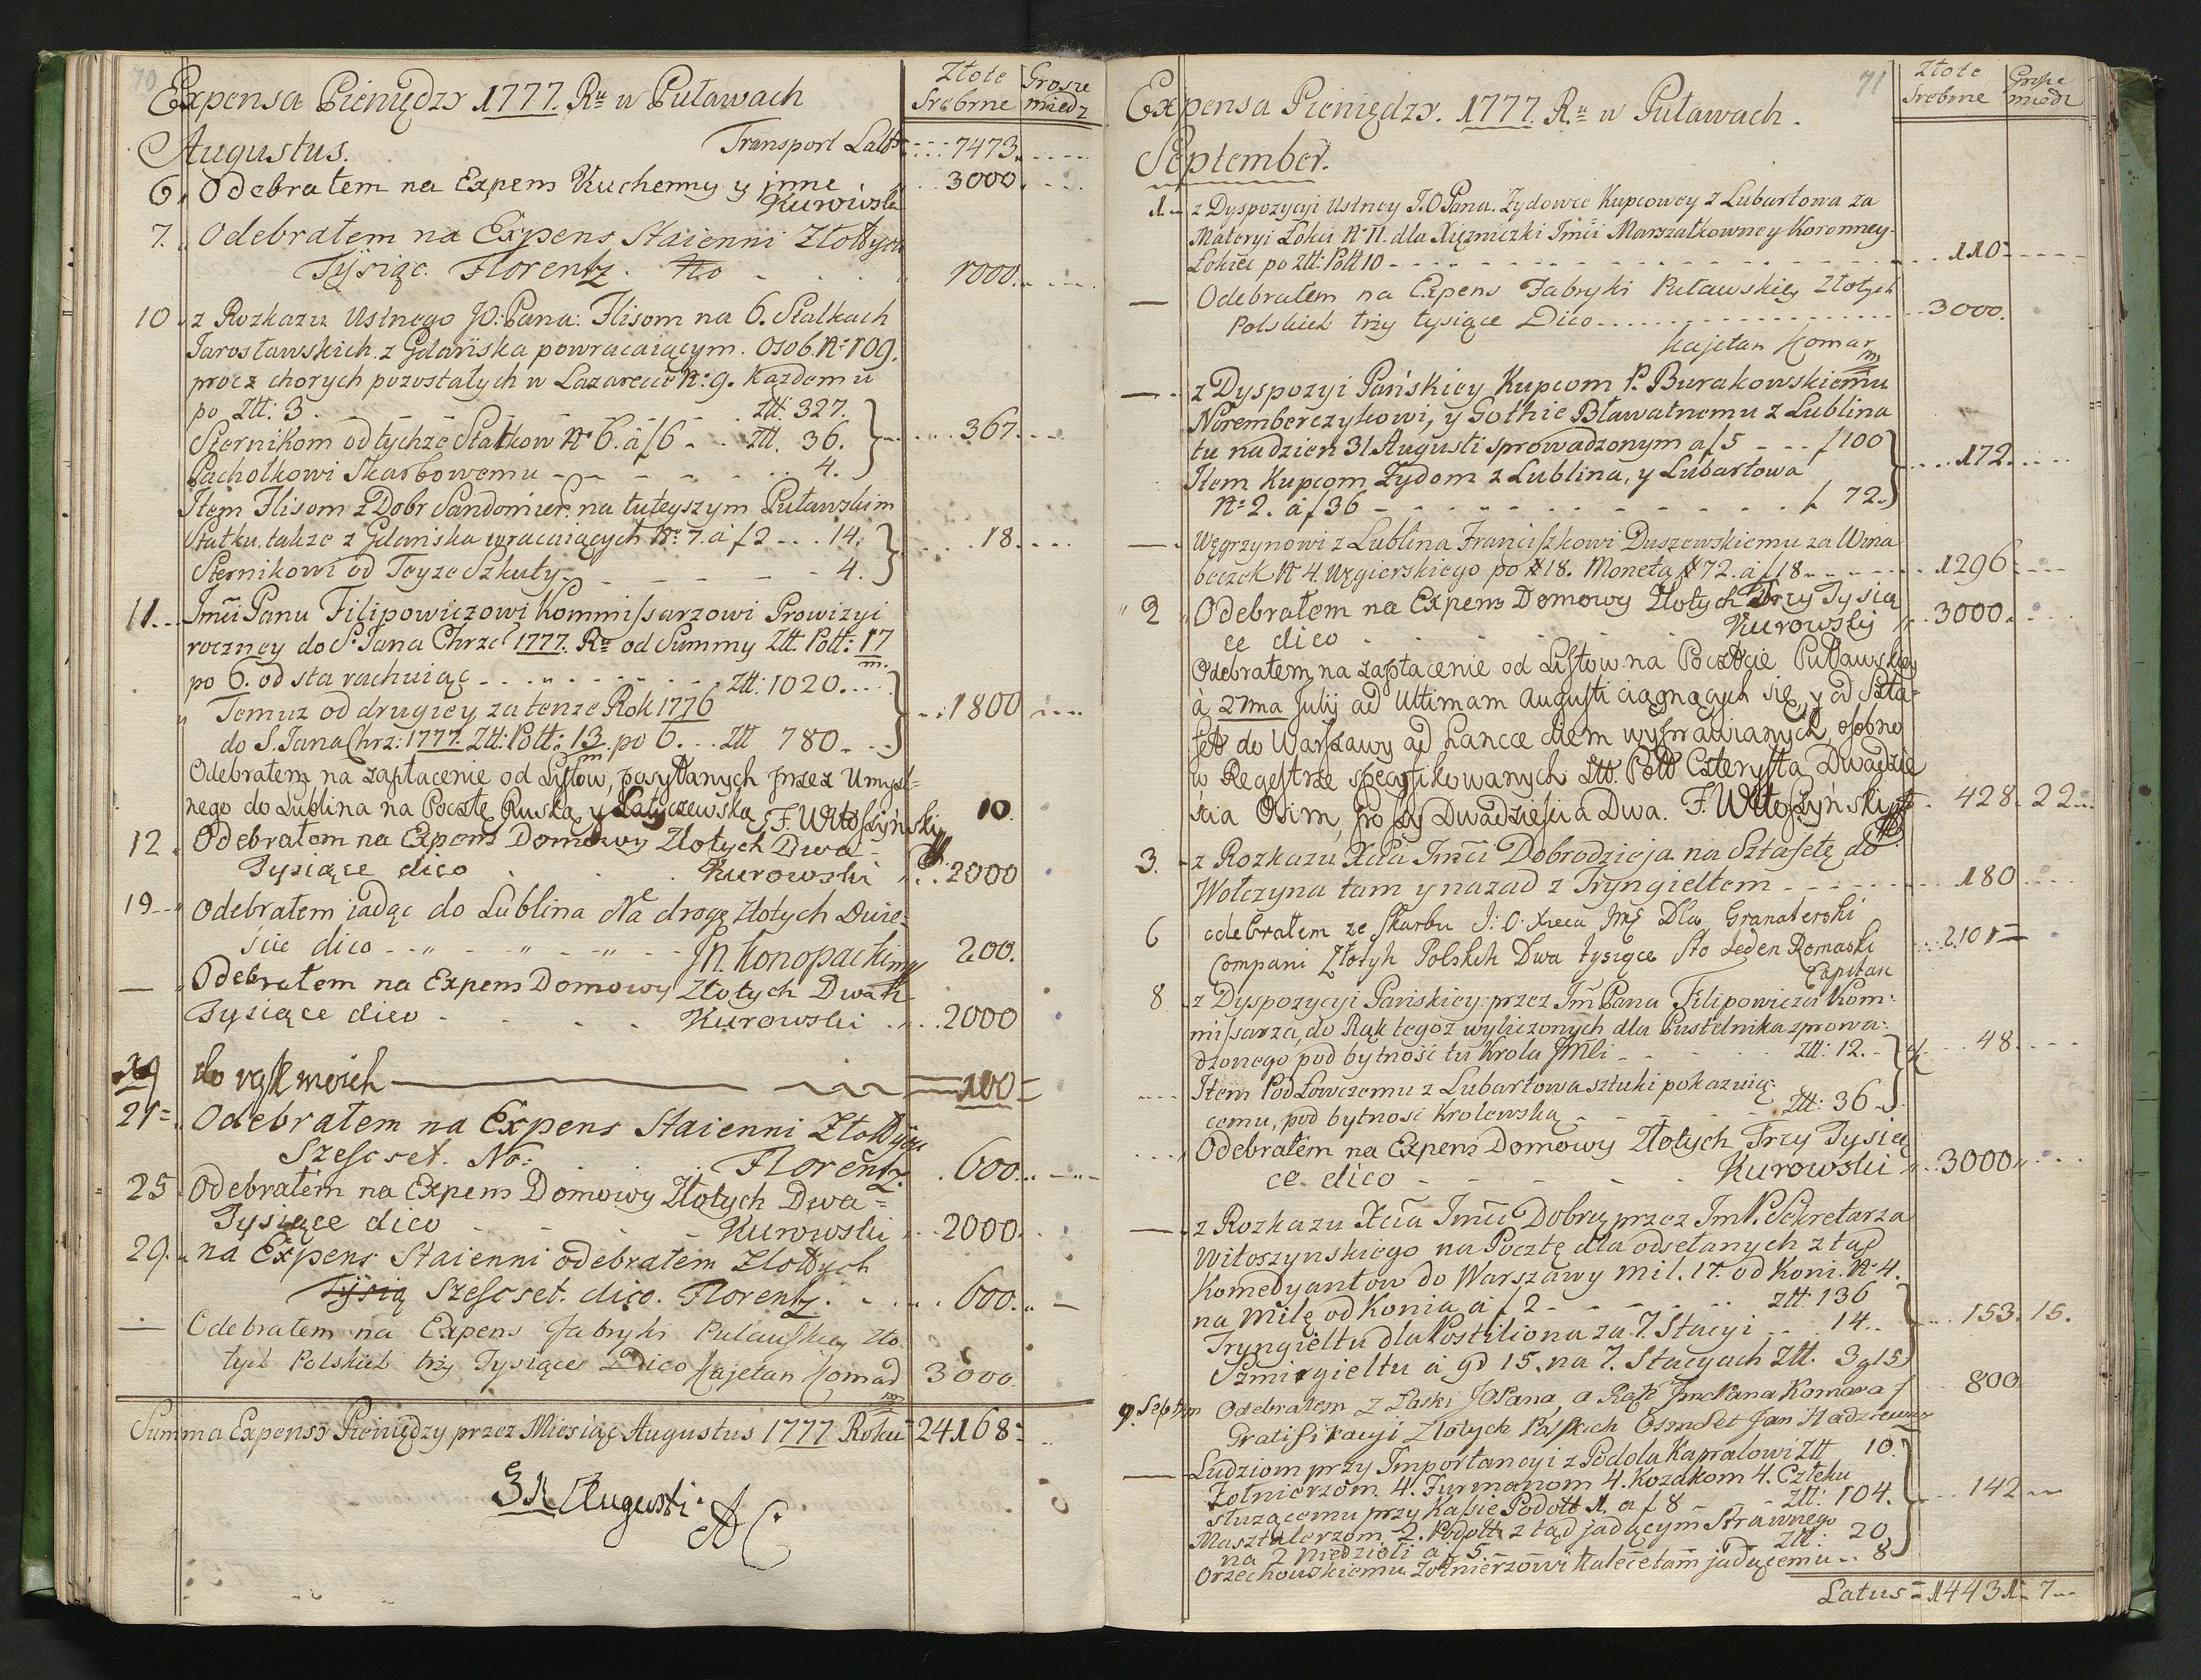 70
Expensa Pieniędzy 1777. Ru w Puławach
Złote Srebrne
Grosze miedz
Augustus.
Transport Latt 7473
6. Odebrałem na Expens Kuchenny y jnne 3000
Kurowski
7. Odebrałem na Expens Staienni Złottych
Tysiąc. Florentz. 1000
10 z Rozkazu Ustnego JO: Pana: Flisom na 6. Statkach
Jarosławskich z Gdańska powracaiącym. Osob. No 109.
procz chorych pozostałych w Lazarecie No: 9. Każdemu
po Ztt: 3. Ztt: 327.
Sternikom od tychże Statkow No 6. à f 6 Ztt. 36. 367
Pachołkowi Skarbowemu 4.
Item Flisom z Dobr Sandomier: na tuteyszym Puławskim
Statku, także z Gdańska wracaiących No: 7. à f 2 14. 18
Sternikowi od Teyże Szkuty 4.
11. Jmci Panu Filipowiczowi Kommissarzowi Prowizyi
roczney do S. Jana Chrzc 1777. Ru od Summy Ztt. Poll: 17
m.
po 6. od sta rachuiąc Ztt: 1020
Temuz od drugiey za tenże Rok 1776 1800
do S. Jana Chrz: 1777. Ztt: Poll: 13. po 6. Ztt 780
m
Odebrałem na zapłacenie od Listow, posyłanych przez Umyśl-
nego do Lublina na Pocztę Ruską y Latyczewską F. Witoszyński 10.
12. Odebrałem na Expens Domowy Złotych Dwa
Tysiące dico Kurowski 2000
19 Odebrałem jadąc do Lublina Na drogę Złotych Dwie-
ście dico Jn. Konopacki mp 200.
— Odebrałem na Expens Domowy Złotych Dwa
Tysiące dico Kurowski 2000
19 do rąk moich 100
21 Odebrałem na Expens Staienni Złottych
Szescset. No: Florentz. 600
25 Odebrałem na Expens Domowy Złotych Dwa=
Tysiące dico Kurowski 2000
29. na Expens Staienni odebrałem Złottych
Tysią Szescset. dico. Florentz. 600
— Odebrałem na Expens Fabryki Puławskiey Zło
tych Polskich trzy Tysiące Dico Kajetan Komar 3000
mp
Summa Expensy Pieniędzy przez Miesiąc Augustus 1777 Roku 24168
31 Augusti AC
71
Expensa Pieniędzy. 1777. Ru w Puławach.
Złote Srebrne
Grosze miedz
September.
1 z Dyspozycyi Ustney J.O Pana. Zydowce Kupcowey z Lubartowa za
Materyi Łokci No 11. dla Xiężniczki Jmci Marszałkowney Koronney
Łokieć po Ztt: Poll 10 110
— Odebrałem na Expens Fabryki Puławskiey Złotych
Polskich trzy tysiące Dico 3000.
Kajetan Komar
mp
— z Dyspozyi Pańskiey Kupcom P. Burakowskiemu
Noremberczykowi, y Gothie Bławatnemu z Lublina
tu na dzien 31 Augusti sprowadzonym a f 5 f 100
Item Kupcom Żydom z Lublina, y Lubartowa 172
No: 2. à f 36 f 72.
— Węgrzynowi z Lublina Franciszkowi Duszewskiemu za Wina
beczek No 4. Węgierskiego po # 18. Monetą # 72. à f 18 1296
2 Odebrałem na Expens Domowy Złotych Trzy Tysią
ce dico Kurowski 3000
Odebrałem na zapłacenie od Listow na Poczcie Puławskiey
à 27ma Julij ad Ultimam Augusti ciągnących się, y od Szta-
fet do Warszawy ad hancce diem wyprawianych, osobno
w Regestrze specyfikowanych Ztt. Poll Czterysta Dwadzie
ścia Osim, groszy Dwadzieścia Dwa. F. Witoszyński mp 428. 22
3. z Rozkazu Xcia Jmci Dobrodzieja na Sztafetę do
Wołczyna tam y nazad z Tryngieltem 180
6 odebrałem ze skarbu J: O: Xcia Jmę Dla Granaterski
Compani Złotyh Polskih Dwa tysięce Sto Jeden Romaski 2101
Capitan
8 z Dyspozycyi Pańskiey: przez Jm Pana Filipowicza Kom-
missarza, do Rąk tegoż wyliczonych dla Pustelnika sprowa-
dzonego pod bytność tu Krola JMci Ztt: 12. 48
Item Pod Łowczemu z Lubartowa sztuki pokazuią-
cemu, pod bytność Krolewską Ztt: 36
Odebrałem na Expens Domowy Złotych Trzy Tysią
ce dico Kurowski 3000
— z Rozkazu Xcia Jmci Dobrz przez Jm P. Sekretarza
Witoszynskiego na Pocztę dla odsełanych z tąd
Komedyantow do Warszawy Mil. 17. od Koni. No 4.
na Milę od Konia à f 2 Ztt. 136
Tryngieltu dla Postiliona za 7. Stacyi 14. 153. 15.
Szmirgieltu a gr 15. na 7. Stacyach Ztt. 3 g 15
9. Septem Odebrałem z Łaski JO Pana, a Rąk Jmc Pana Komara 800
Gratifikacyi Złotych Polskich Osmset Jan
— Ludziom przy Importancyi z Podola Kapralowi Ztt 10.
Żołnierzom 4. Furmanom 4. Kozakom 4. Człeku
służącemu przy Kasie Podolt 1. a f 8 Ztt: 104. 142
Masztalerzom 2. Podolt: z tąd jadącym Strawnego
na 2 Niedzieli a f 5. Ztt: 20
Orzechowskiemu Żołnierzowi jadącemu 8
Latus 14431 7